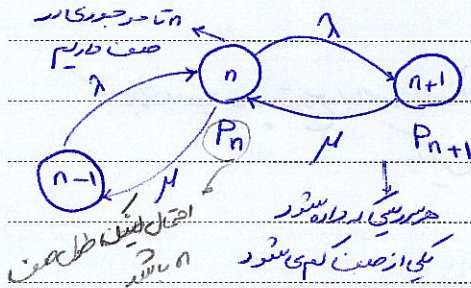 n تا موجودی در
صف داریم
λ
λ
n
n+1
μ
P_n
μ
P_{n+1}
n-1
احتمال اینکه طول صف
n باشد
هر سرویسی که داده شود
یکی از صف کم می شود